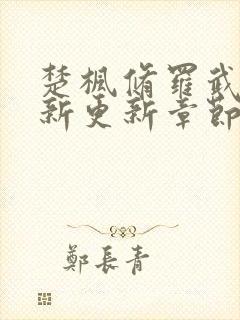 楚楓脩羅武
新更新章節
鄭長青